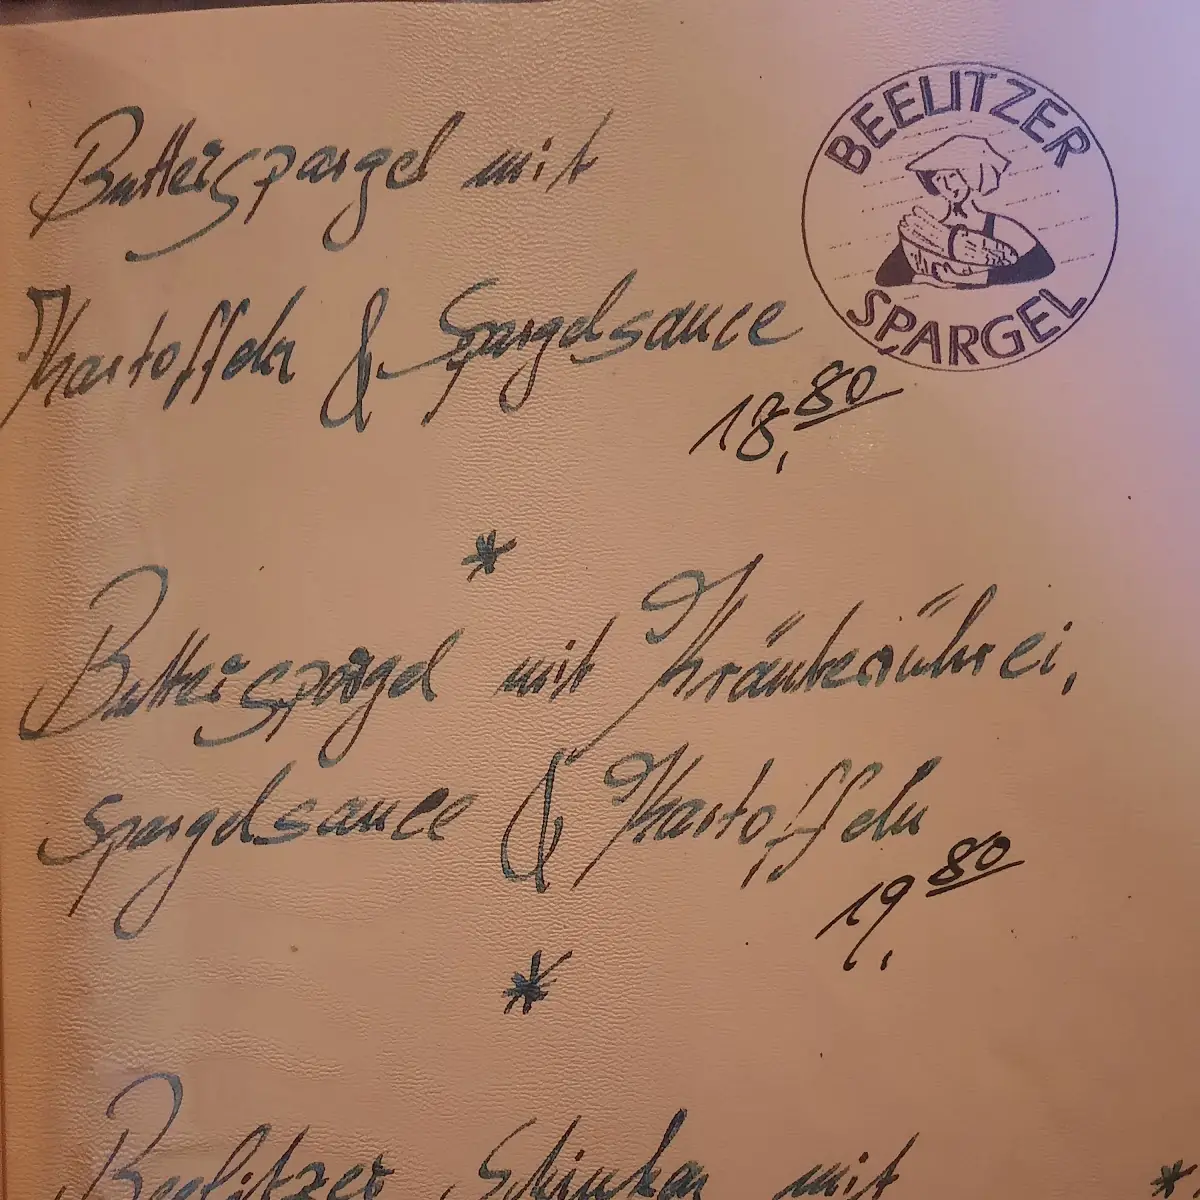 BEELITZER
SPARGEL
Butterspargel mit
Kartoffeln & Spargelsauce
18,80
*
Butterspargel mit Kräuterrührei,
Spargelsauce & Kartoffeln
19,80
*
Beelitzer Schinken mit
*